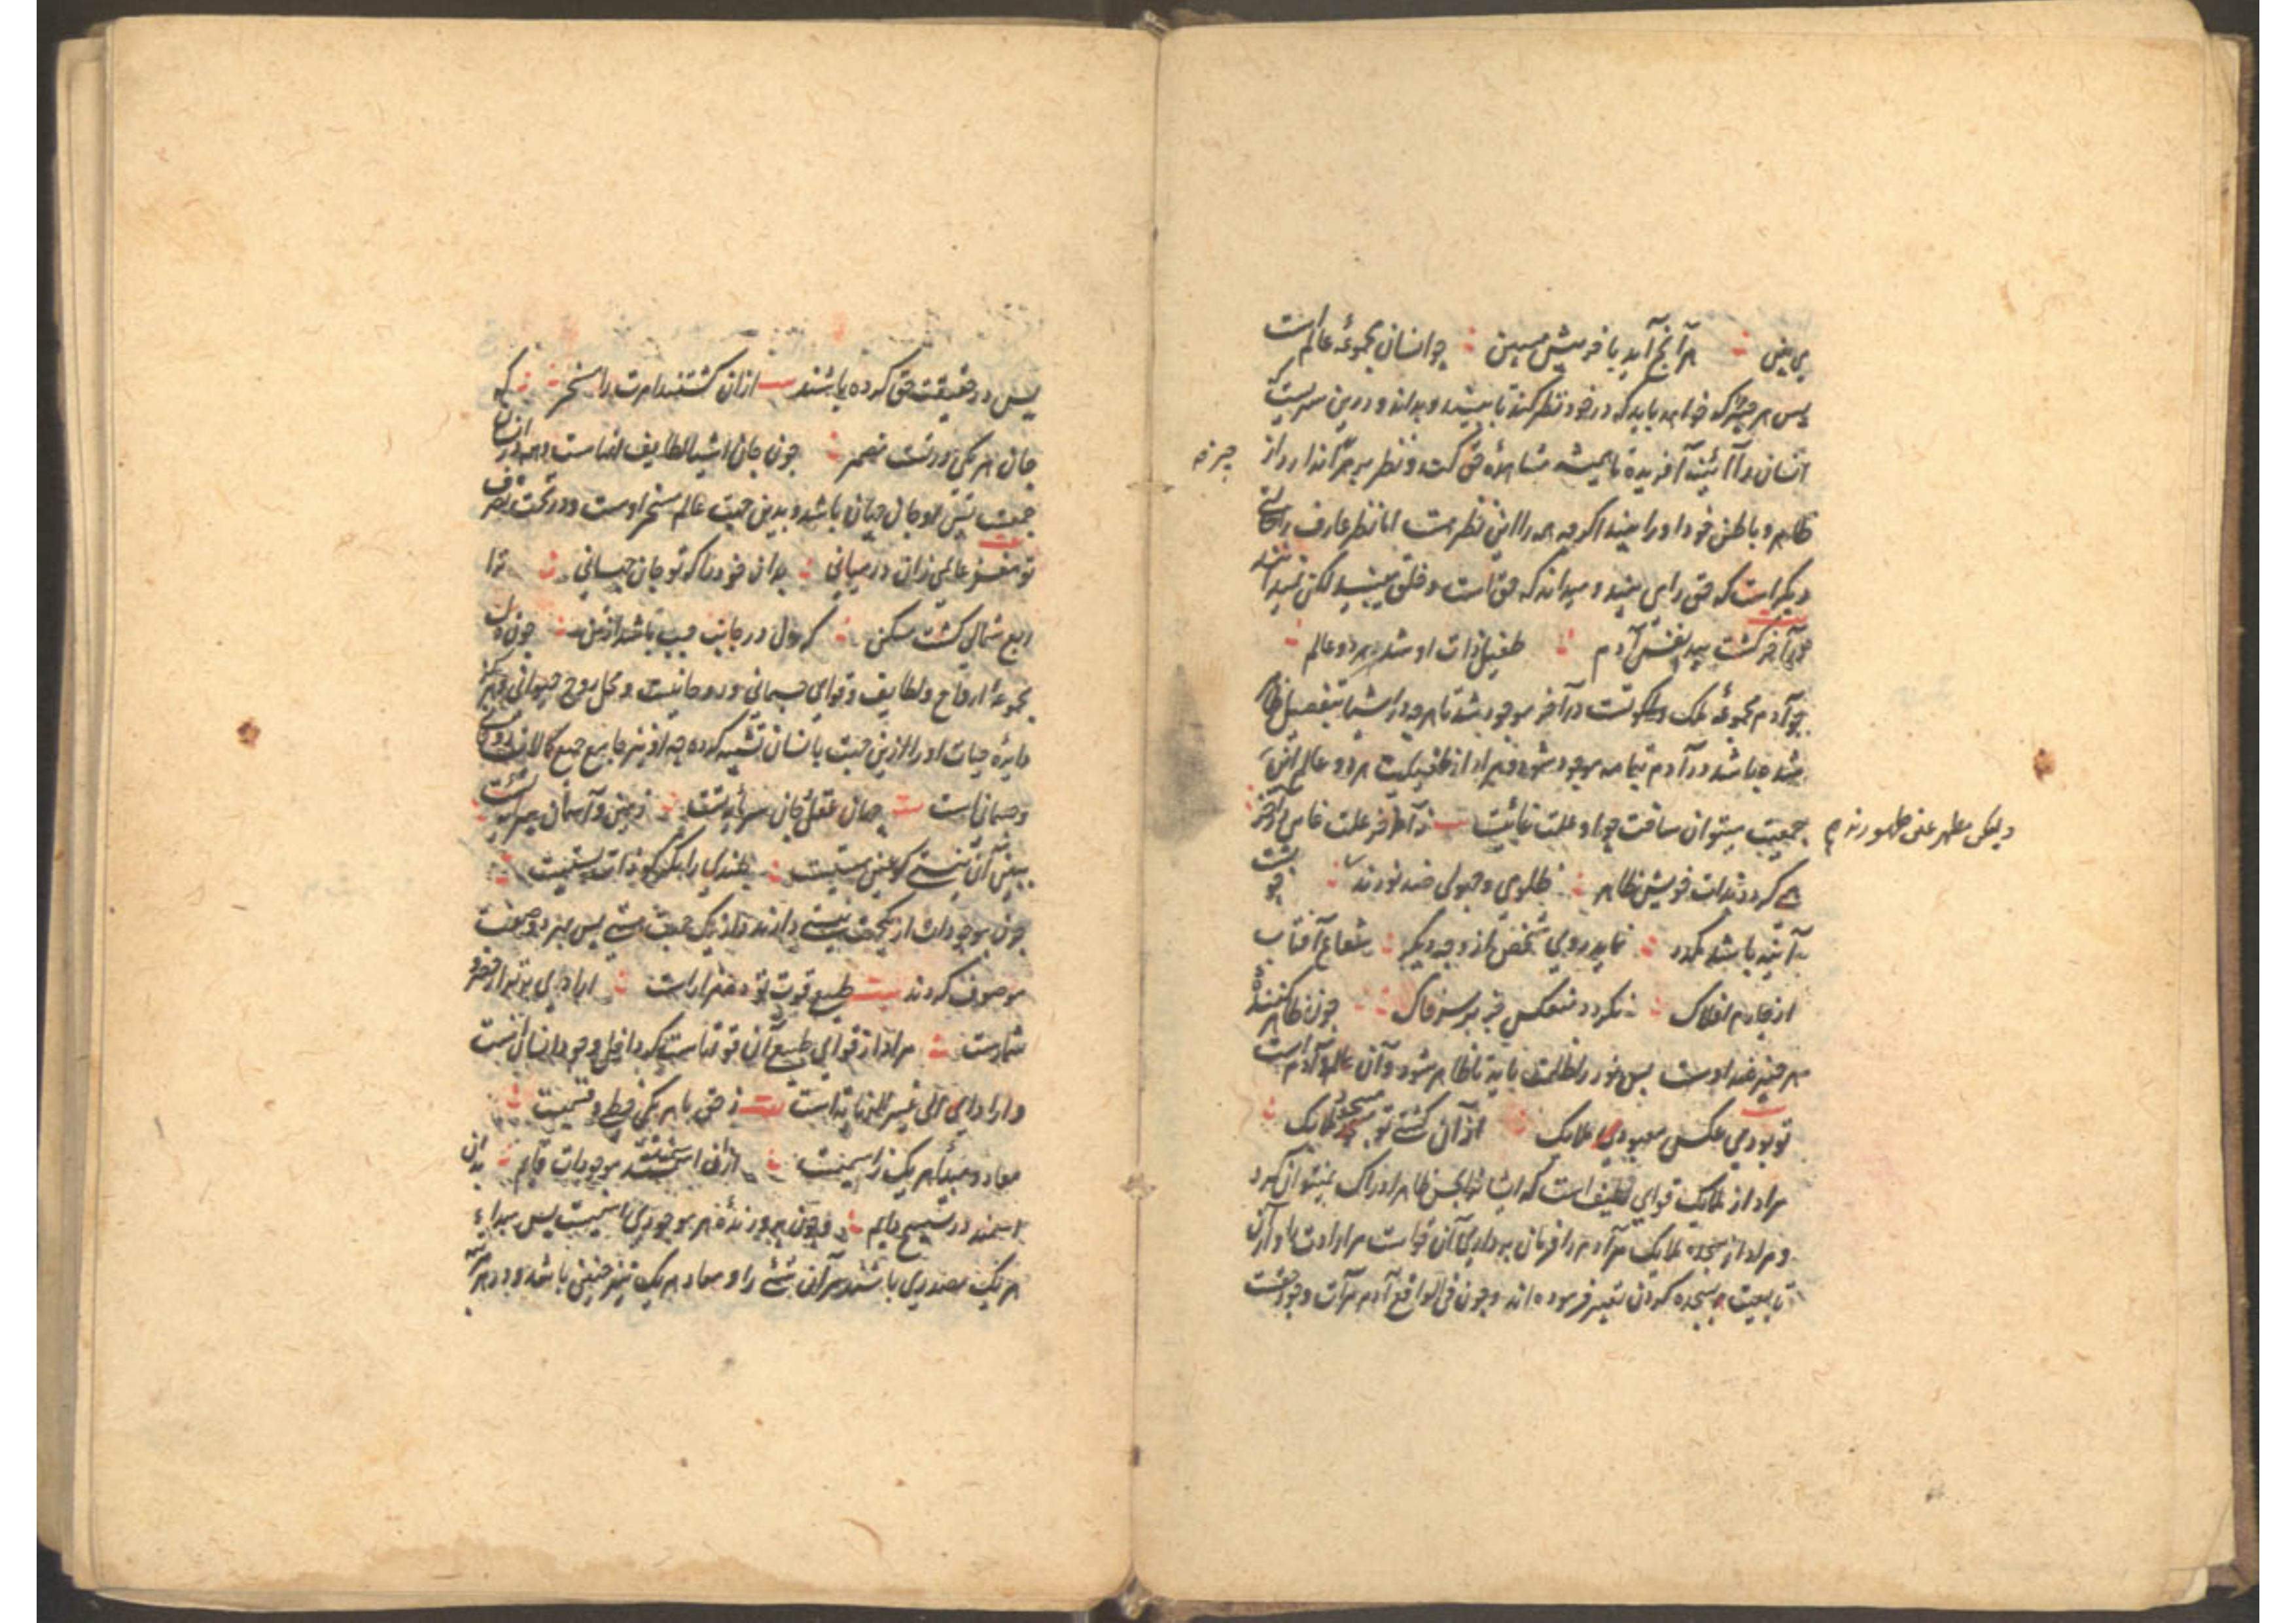 می بینی ∴ هر آنچ آید بآخر پیش می بین ∴ چو انسان مجموعهٔ عالم است
پس هر چیز که خواهد باید که در خود نظر کند تا به بیند و بداند و درین سریست که
انسان را آئینه آفریده تا همیشه مشاهدهٔ حق کند و نظر بر هر که اندازد از
چیز نه
ظاهر و باطن خود او را بیند اگرچه همه را این نظر هست اما نظر عارف را حالتی
دیگر است که حق را می بیند و میداند که حق است و خلق می بینند لکن نمیدانند
چو آخر گشت پیدا نفس آدم ∴ طفیل ذات او شد هر دو عالم ∴
چو آدم مجموعهٔ ملک و ملکوتست در آخر موجود شد تا هرچه در اشیا بتفصیل ظاهر
شده باشد در آدم بتمامه موجود شود و مراد از طفیلیت هر دو عالم این
جمعیت میتوان ساخت چو او علت غائیت ∴ نه آخر علت غایی در آخر
ولیکن مظهر عین ظهورند
همی گردد بذات خویش ظاهر ∴ ظلومی و جهولی ضد نورند ∴ چو پشت
آینه باشد مکدر ∴ نماید روی شخص از وجه دیگر ∴ شعاع آفتاب
از چارم افلاک ∴ نگردد منعکس جز بر سر خاک ∴ چون ظاهر کنندهٔ
هر چیز ضد اوست پس نور را ظلمت باید تا ظاهر شود و آن عالم و آدم است
تو بودی عکس معبود ملایک ∴ از آن گشتی تو مسجود ملایک ∴
مراد از ملایک قوای لطیف است که ایشان را بحس ظاهر ادراک نمیتوان کرد
و مراد از سجده ملایک مر آدم را فرمان برداری آن قواست مر ارادت او را و آن
تابعیت بسجده کردن تعبیر فرموده اند و چون فی الواقع آدم مرآت وجود حقست
پس در حقیقت حق کرده باشند از آن گشتند امرت را مسخر ∴ که
جان هر یکی در تست مضمر ∴ چون جان اشیا لطایف انهاست و همه در انسان
جمعیت پس او جان جهان باشد و بدین جهت عالم مسخر اوست و در تحت تصرف
تو مغز عالمی زان در میانی ∴ بدان خود را که تو جان جهانی ∴ ترا
ربع شمالی گشت مسکن ∴ که دل در جانب چپ باشد از تن ∴ چون دل
مجموعهٔ ارواح و لطایف و قوای جسمانی و روحانیست و محل روح حیوانی و مرکز
دایرهٔ حیات او را ازین جهت بانسان تشبیه کرده چه او نیز جامع جمیع کمالات روحانی
و جسمانی است جهان عقل و جان سرمایه تست ∴ زمین و آسمان پیرایه تست ∴
ببین آن نیستی کو عین هستیست ∴ بلندی را نگر کو ذات پستیست ∴
چون موجودات از یکجهت نیستی دارند و از یک جهت هستی پس بهر دو صفت
موصوف کردند طبیعی قوت تو ده هزار است ∴ ارادی برتر از حصر و
شمارست ∴ مراد از قوای طبیعی آن قوتهاست که داخل وجود انسان است
و ارادی الی غیر النهایه است ز حق با هر یکی حظی و قسمیست ∴
معاد و مبدأ هر یک ز اسمیست ∴ از آن اسمند موجودات قایم ∴ بدان
اسمند در تسبیح دایم ∴ و چون پرورندهٔ هر موجودی اسمیست پس مبداء
هر یک مصدری باشند مر آن شئی را و معاد هر یک نیز همین باشد و در هر مرتبه